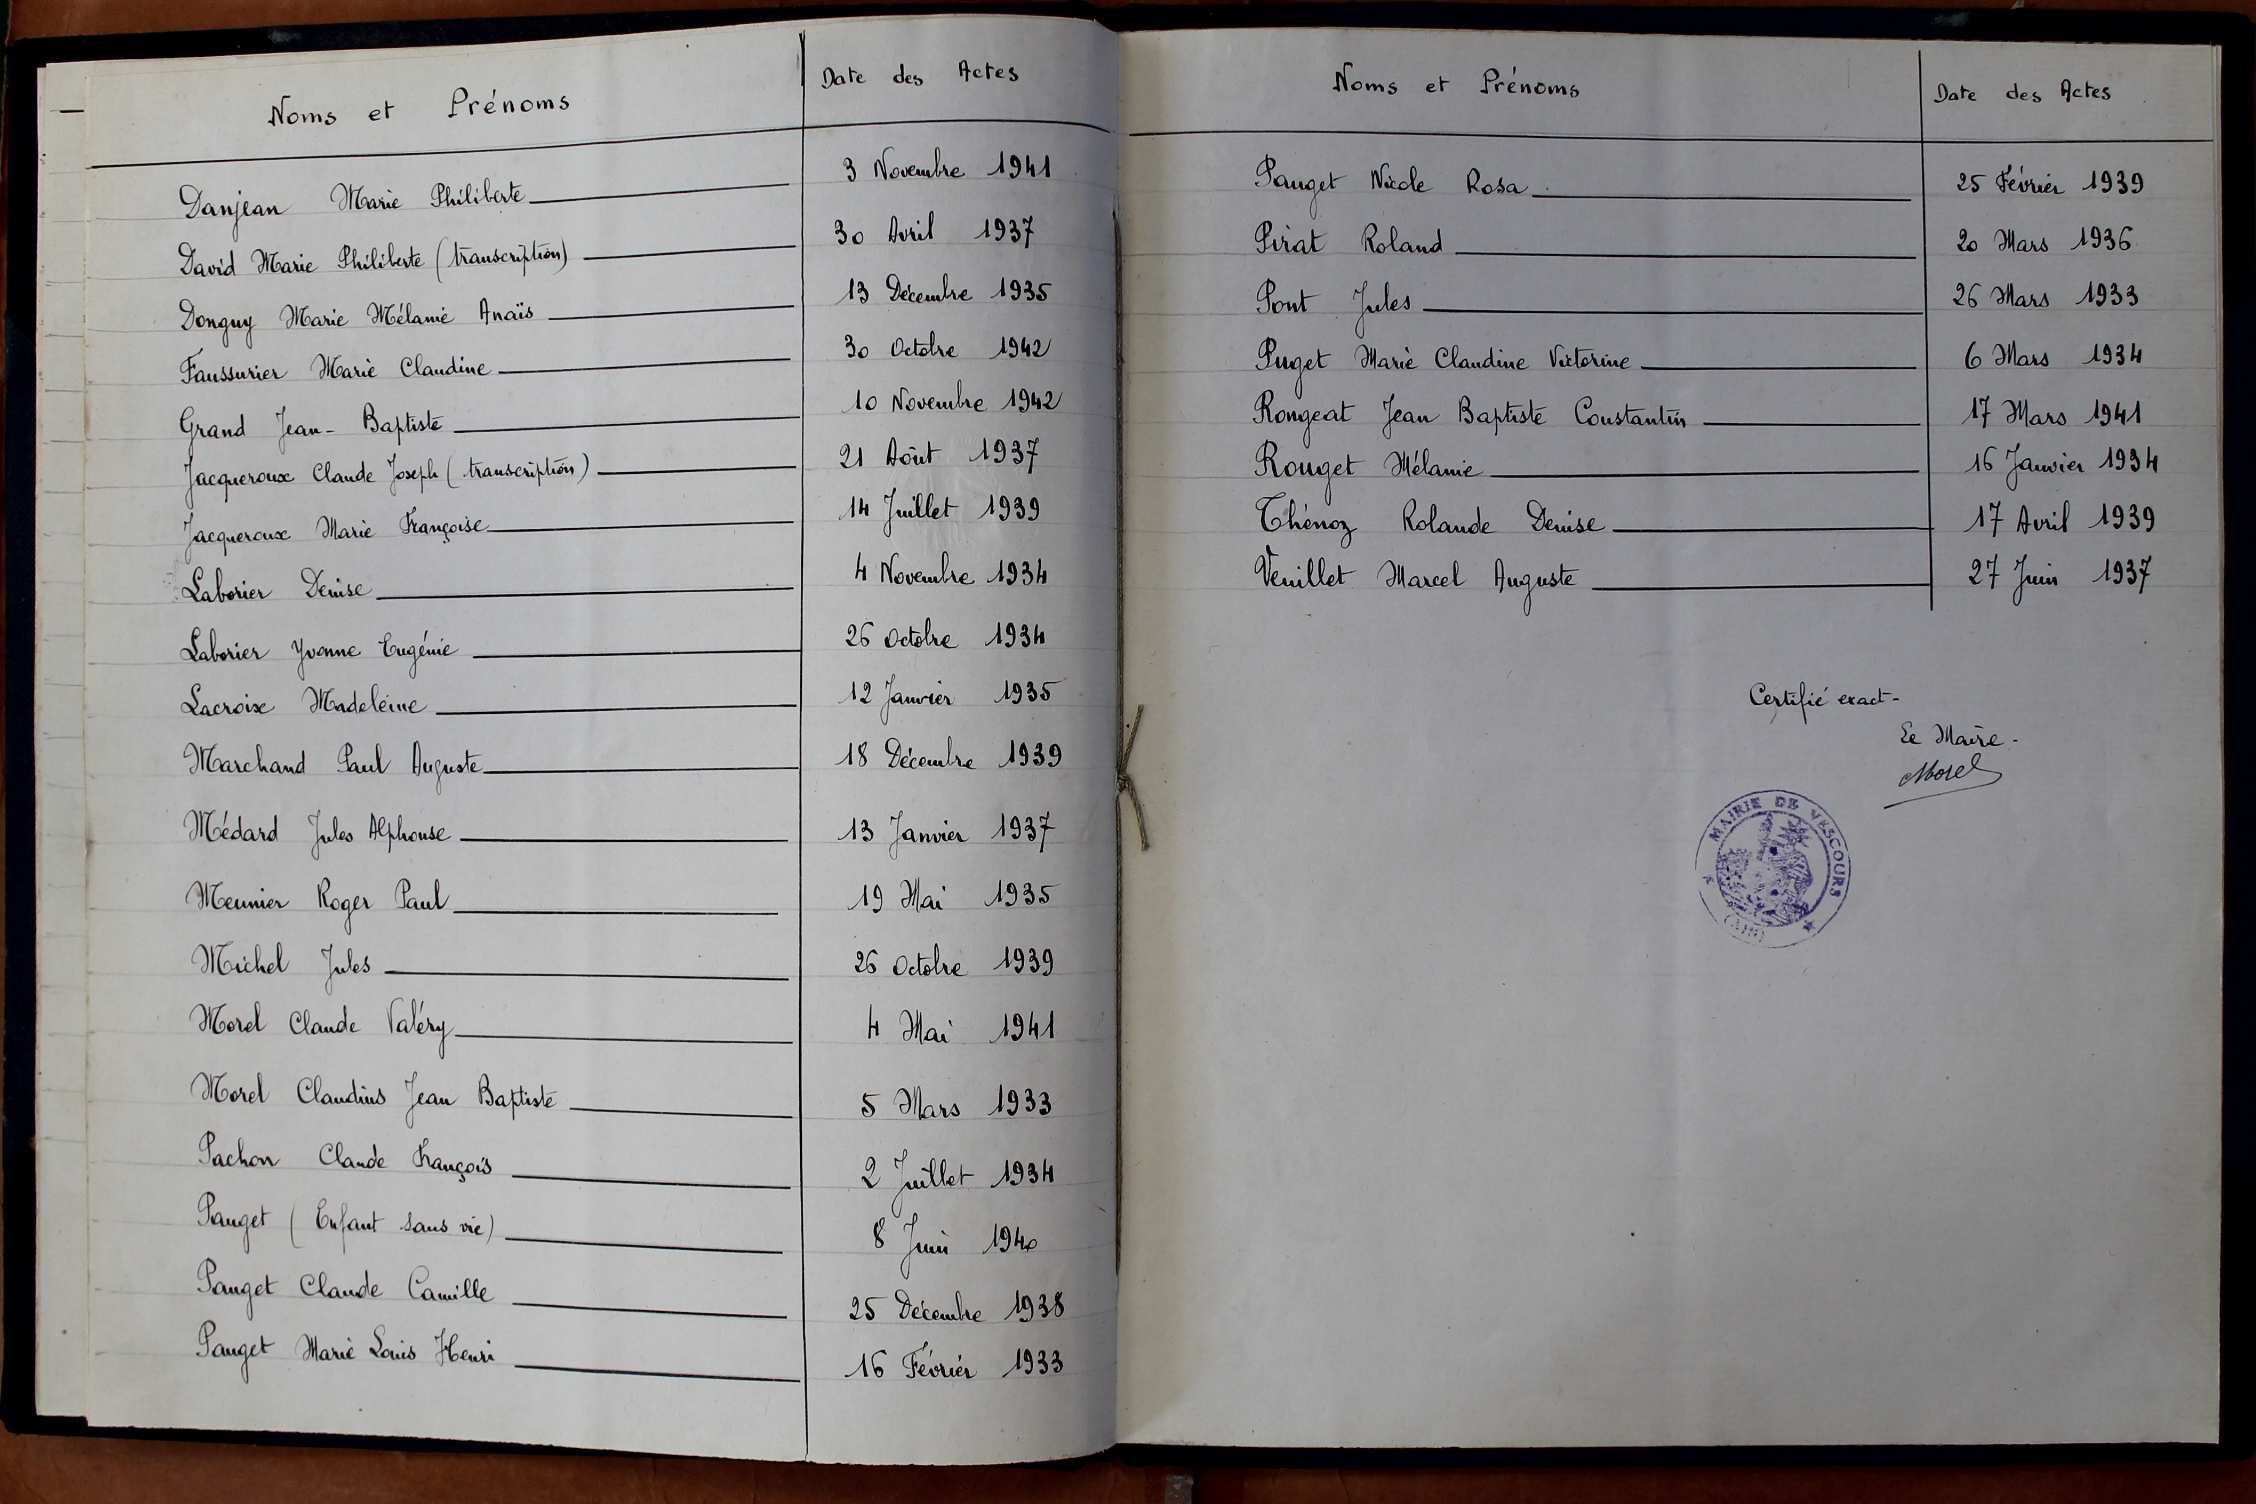 Noms et Prénoms Date des Actes
Danjean Marie Philiberte 3 Novembre 1941
David Marie Philiberte (transcription) 30 Avril 1937
Donguy Marie Mélanie Anaïs 13 Décembre 1935
Faussurier Marie Claudine 30 Octobre 1942
Grand Jean-Baptiste 10 Novembre 1942
Jacqueroux Claude Joseph (transcription) 21 Août 1937
Jacqueroux Marie Françoise 14 Juillet 1939
Laborier Denise 4 Novembre 1934
Laborier Yvonne Eugénie 26 Octobre 1934
Lacroix Madeleine 12 Janvier 1935
Marchand Paul Auguste 18 Décembre 1939
Médard Jules Alphonse 13 Janvier 1937
Meunier Roger Paul 19 Mai 1935
Michel Jules 26 Octobre 1939
Morel Claude Valéry 4 Mai 1941
Morel Claudius Jean Baptiste 5 Mars 1933
Pachon Claude François 2 Juillet 1934
Pauget (Enfant sans vie) 8 Juin 1940
Pauget Claude Camille 25 Décembre 1938
Pauget Marie Louis Henri 16 Février 1933
Noms et Prénoms Date des Actes
Pauget Nicole Rosa 25 Février 1939
Pirat Roland 20 Mars 1936
Pont Jules 26 Mars 1933
Puget Marie Claudine Victorine 6 Mars 1934
Rongeat Jean Baptiste Constantin 17 Mars 1941
Rouget Mélanie 16 Janvier 1934
Thénoz Rolande Denise 17 Avril 1939
Veuillet Marcel Auguste 27 Juin 1937
Certifié exact-
Le Maire-
Morel
MAIRIE DE VESCOURS
(AIN)